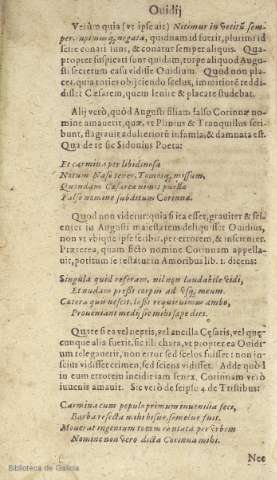 Ouidij
Verùm quia (vt ipse ait) Nitimur in vetitũ sem-
per, cupimusq; negata, quidnam id fuerit, plurimi id
scire conati sunt, & conatur semper aliquis. Qua-
propter suspicati sunt quidam, turpe aliquid Augu-
sti secretum casu vidisse Ouidium. Quod non pla-
cet, quia toties obijciendo scelus, immitiorē reddi-
disset Cæsarem, quem lenire & placare studebat.
Alij verò, quòd Augusti filiam falso Corinnæ no-
mine amauerit, quæ, vt Plinius & Tranquillus scri-
bunt, flagrauit adulteriorū infamia, & damnata est.
Qua de re sic Sidonius Poeta:
Et carmina per libidinosa
Notum Naso tener, Tomosq; missum,
Quondam Cæsareæ nimis puellæ
Falso nomine subditum Corinnæ.
Quod non videtur: quia si ita esset, grauiter & sel-
in Augusti maiestatem deliquisset Ouidius,
non vt vbique ipse scribit, per errorem, & inscienter.
Præterea, quam ficto nomine Corinnam appella-
uit, potitum se testatur in Amoribus lib. 1. dicens:
Singula quid referam, nil non laudabile vidi,
Et nudam pressi corpus ad vsq; meum.
Cætera quis nescit, lassi requieuimus ambo,
Proueniant medij sic mihi sæpe dies.
Quare si ea vel neptis, vel ancilla Cęsaris, vel quę-
cunque alia fuerit, sic illi chara, vt propter ea Ouidi-
um relegauerit, non error sed scelus fuisset: non in-
scius vidisset crimen, sed sciens vidisset. Adde quòd
in eum errorem incidit iam senex, Corinnam verò
iuuenis amauit. Sic verò de seipso 4. de Tristibus:
Carmina cum populo primum iuuenilia legi,
Barba resecta mihi bisue, semelue fuit.
Mouerat ingenium totam cantata per vrbem
Nomine non vero dicta Corinna mihi.
Nec
Biblioteca de Galicia